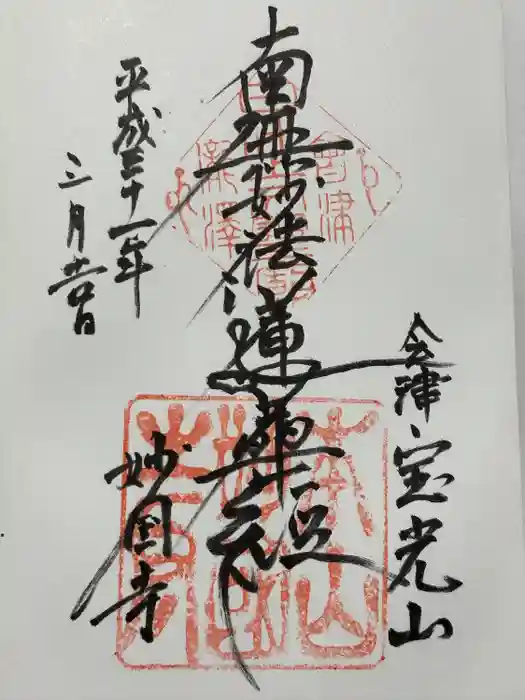 会津 宝光山
南無妙法蓮華経
妙国寺
平成三十一年
三月廿四日
會津
瀧澤